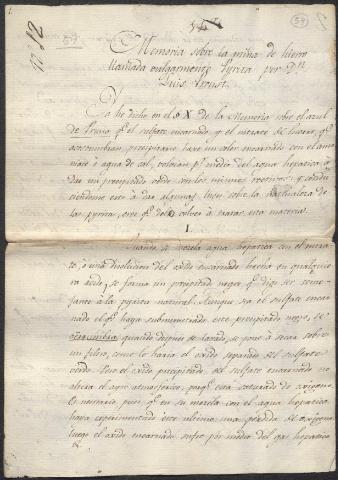 59
Memoria sobre la mina de hierro
llamada vulgarmente Pyrita por Dn
Luis Proust.
Ya he dicho en el § X de la Memoria sobre el azul
de Prusia qe el sulfate encarnado, y el nitrate de hierro, qe
acostumbran precipitarse bajo un color encarnado con el amo-
niaco ó agua de cal, volvian pr medio del agua hepatica á
dar un precipitado verde con los mismos reactivos: y condu-
ciendome esto á dar algunas luces sobre la naturaleza de
las pyritas, creo qe debo volver á tratar esta materia.
1.
Quando se mezcla agua hepatica con el muria-
to, ó una disolucion del oxide encarnado hecha en qualquie-
ra acido, se forma un precipitado negro, qe dije ser seme-
jante á la pyrita natural. Aunque sea el sulfate encar-
nado el qe haya subministrado este precipitado negro, se
quando despues de lavado, se pone á secar sobre
un filtro, como lo haria el oxide separado del sulfate
verde. Pero el oxide precipitado del sulfate encarnado no
altera el ayre atmosferico, porqe está saturado de oxigeno.
Es necesario, pues, qe en su mezcla con el agua hepatica
haya experimentado este ultimo una pérdida de oxigeno:
luego el oxide encarnado sufre por medio del gas hepatico